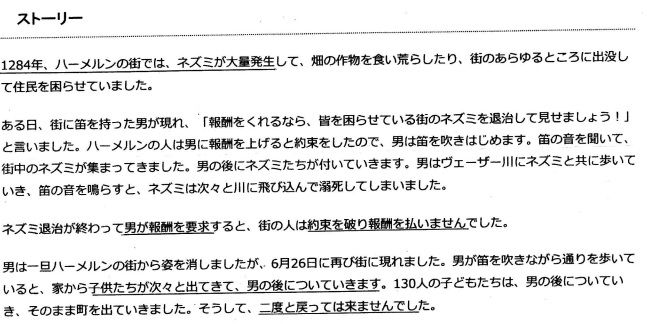 ストーリー
1284年、ハーメルンの街では、ネズミが大量発生して、畑の作物を食い荒らしたり、街のあらゆるところに出没し
て住民を困らせていました。
ある日、街に笛を持った男が現れ、「報酬をくれるなら、皆を困らせている街のネズミを退治して見せましょう！」
と言いました。ハーメルンの人は男に報酬を上げると約束をしたので、男は笛を吹きはじめます。笛の音を聞いて、
街中のネズミが集まってきました。男の後にネズミたちが付いていきます。男はヴェーザー川にネズミと共に歩いて
いき、笛の音を鳴らすと、ネズミは次々と川に飛び込んで溺死してしまいました。
ネズミ退治が終わって男が報酬を要求すると、街の人は約束を破り報酬を払いませんでした。
男は一旦ハーメルンの街から姿を消しましたが、6月26日に再び街に現れました。男が笛を吹きながら通りを歩いて
いると、家から子供たちが次々と出てきて、男の後についていきます。130人の子どもたちは、男の後についてい
き、そのまま町を出ていきました。そうして、二度と戻っては来ませんでした。